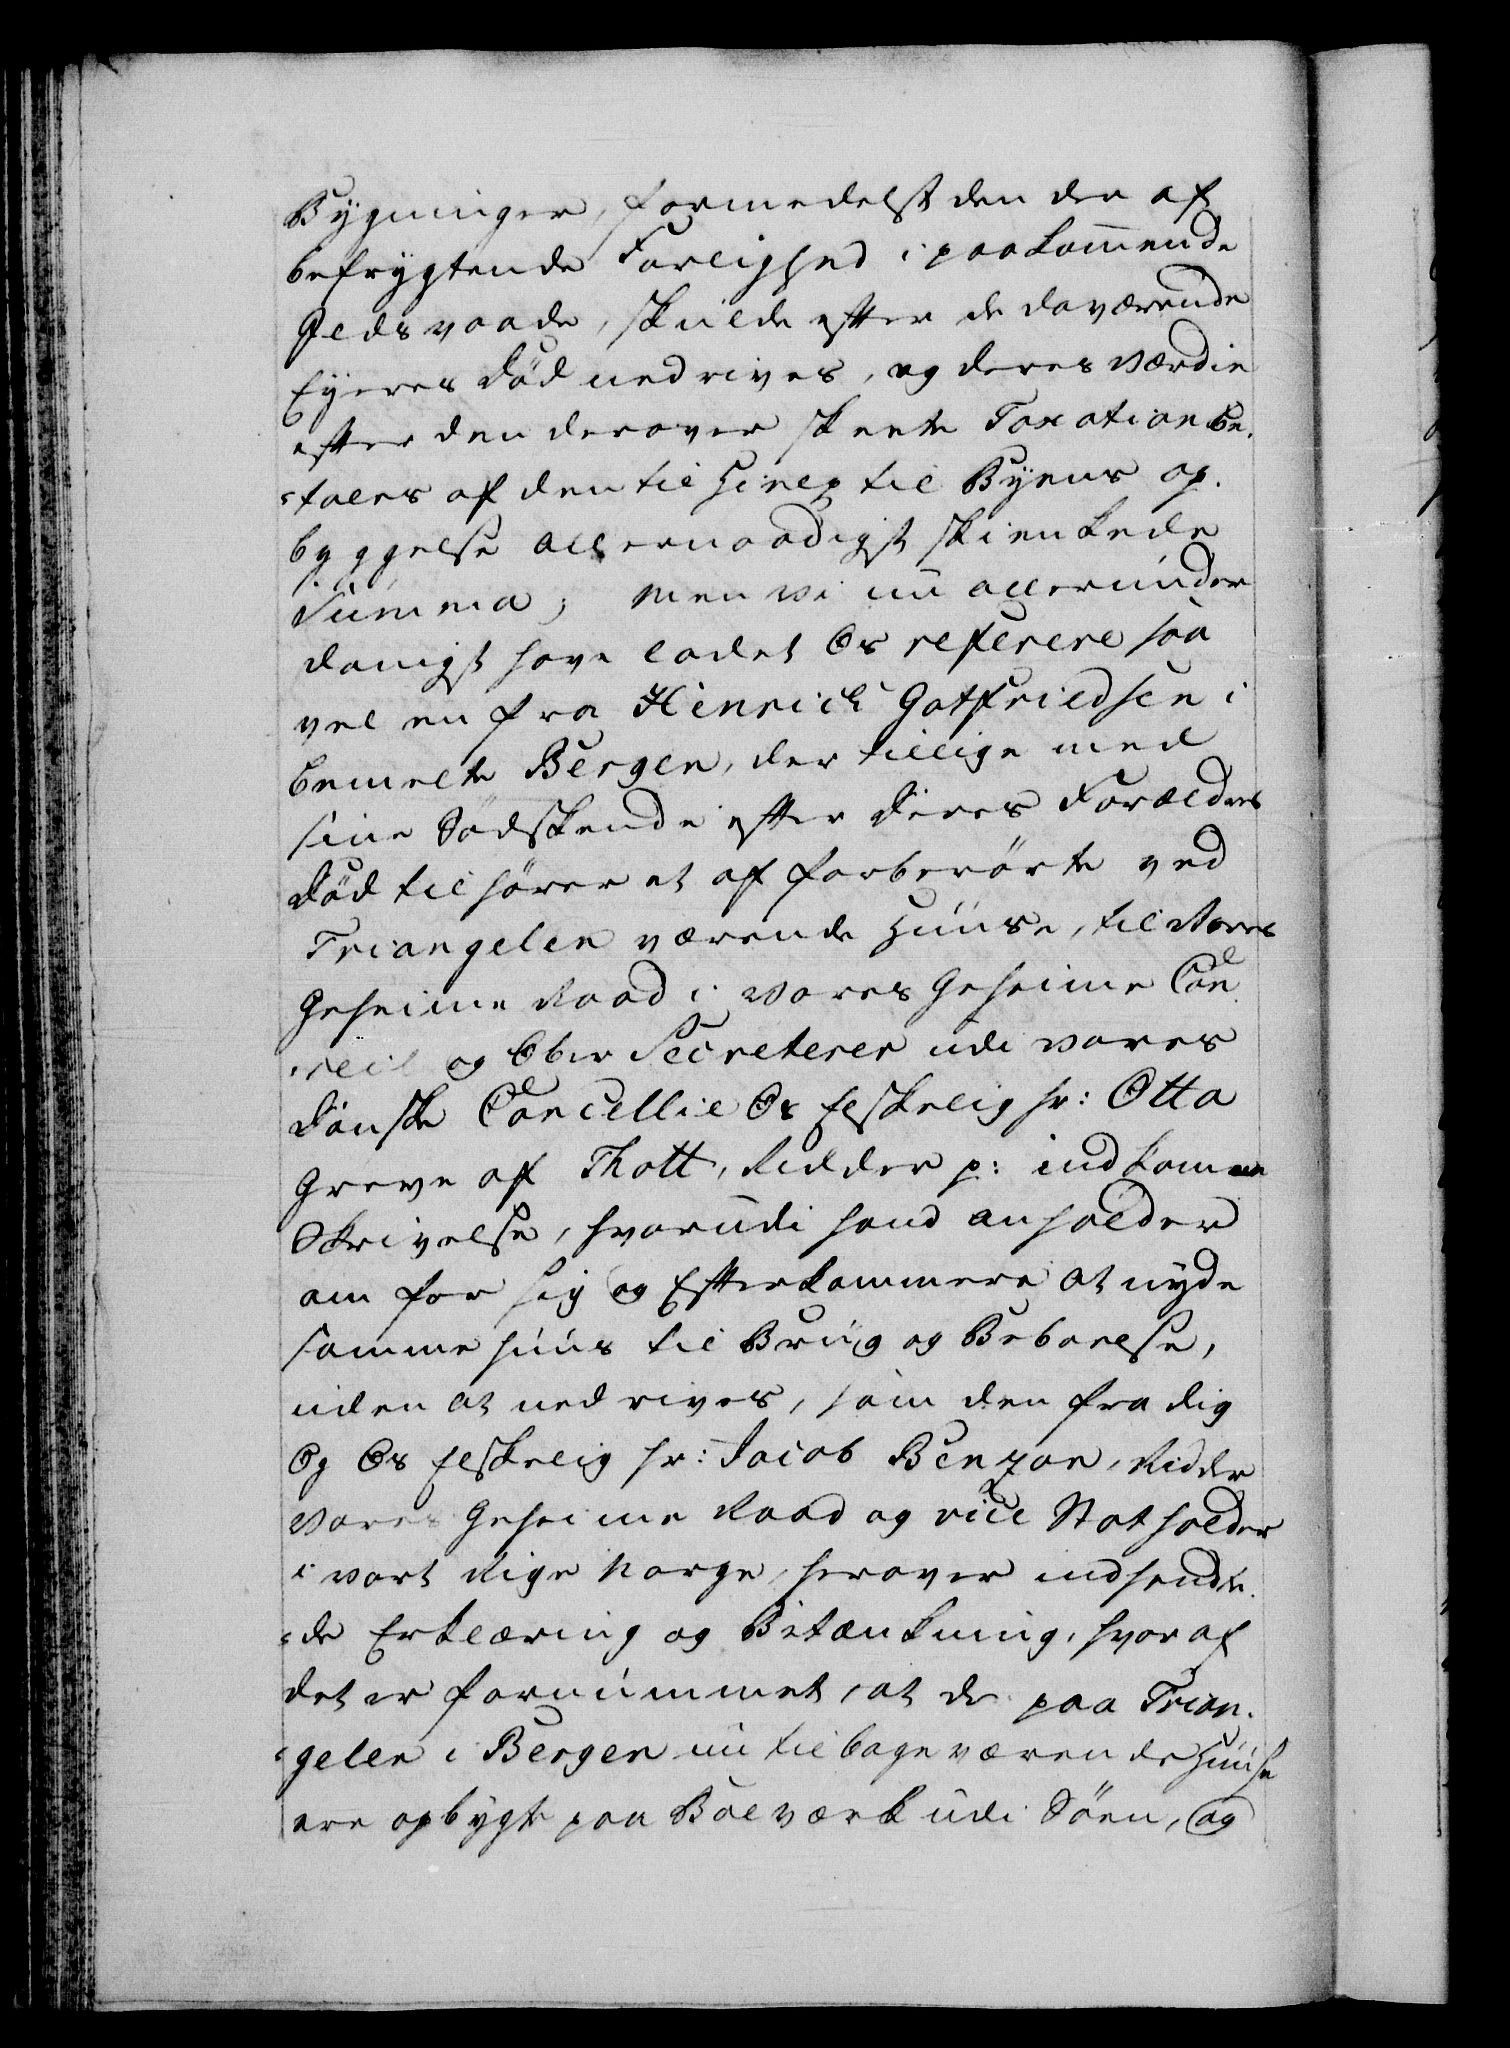 Bygninger, formedelst den der af
befrygtende Farlighed i paakommende
Ildsvaade, skulde efter de daværende
Eyeres Död nedrives, og deres værdie
efter den derover skeete Taxation be-
-tales af den til Hielp til Byens op-
byggelse allernaadigst skienkede
Summa; men vi nu allerunder
danigst have ladet Os referere saa
vel en fra Hinrich Gotfriedsen i
bemelte Bergen, der tillige med
sine Södskende efter Deres Forældres
Död tilhörer et af forberörte ved
Triangelen værende Huuse, til Vores
Geheime Raad i vores Geheime Con
-seil og Ober Secreterer udi vores
Danske Cancellie Os Elskelig Hr: Otto
Greve af Thott, Ridder p: indkomne
Skrivelse, hvorudi hand anholder
om for sig og Efterkommere at nyde
samme huus til Brug og Beboelse,
uden at nedrives, som den fra dig
Og Os Elskelig Hr: Jacob Benzon, Ridder
Vores Geheime Raad og vice Statholder
i vort Rige Norge, herover indsendte
-de Erklæring og Betænkning, hvoraf
det er fornummet, at de paa Trian-
-gelen i Bergen nu tilbageværende Huuse
ere opbygte paa Bolværk udi Söen, og